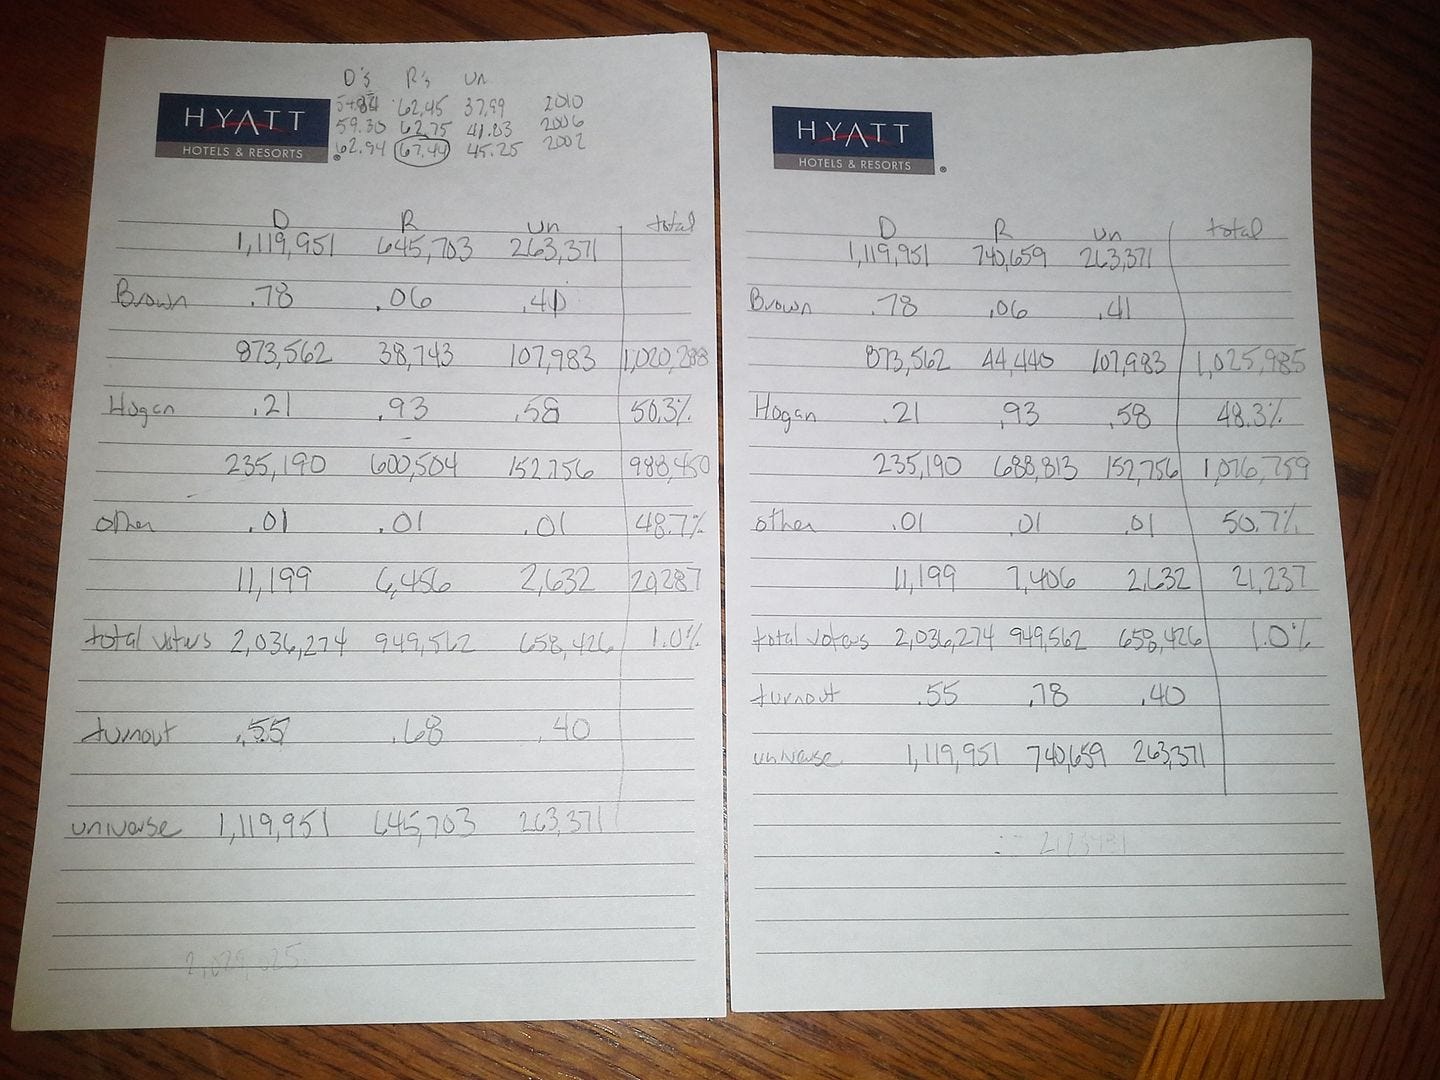 D's R's un
HYATT
HOTELS & RESORTS ®
62.45 37.99 2010
59.30 62.75 41.03 2006
62.94 67.44 45.25 2002
D R un total
1,119,951 645,703 263,371
Brown .78 .06 .41
873,562 38,743 107,983 1,020,288
Hogan .21 .93 .58 50.3%
235,190 600,504 152,756 988,450
other .01 .01 .01 48.7%
11,199 6,456 2,632 20,287
total voters 2,036,274 949,562 658,426 1.0%
turnout .55 .68 .40
universe 1,119,951 645,703 263,371
HYATT
HOTELS & RESORTS ®
D R un total
1,119,951 740,659 263,371
Brown .78 .06 .41
873,562 44,440 107,983 1,025,985
Hogan .21 .93 .58 48.3%
235,190 688,813 152,756 1,076,759
other .01 .01 .01 50.7%
11,199 7,406 2,632 21,237
total voters 2,036,274 949,562 658,426 1.0%
turnout .55 .78 .40
universe 1,119,951 740,659 263,371